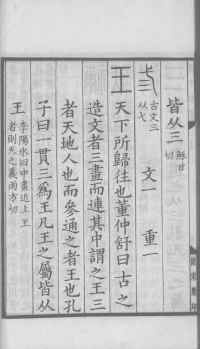 皆从三 穌甘切
弎 古文三从弋
文一 重一
王 天下所歸往也董仲舒曰古之
造文者三畫而連其中謂之王三
者天地人也而參通之者王也孔
子曰一貫三爲王凡王之屬皆从
王 李陽冰曰中畫近上王
者則天之義雨方切